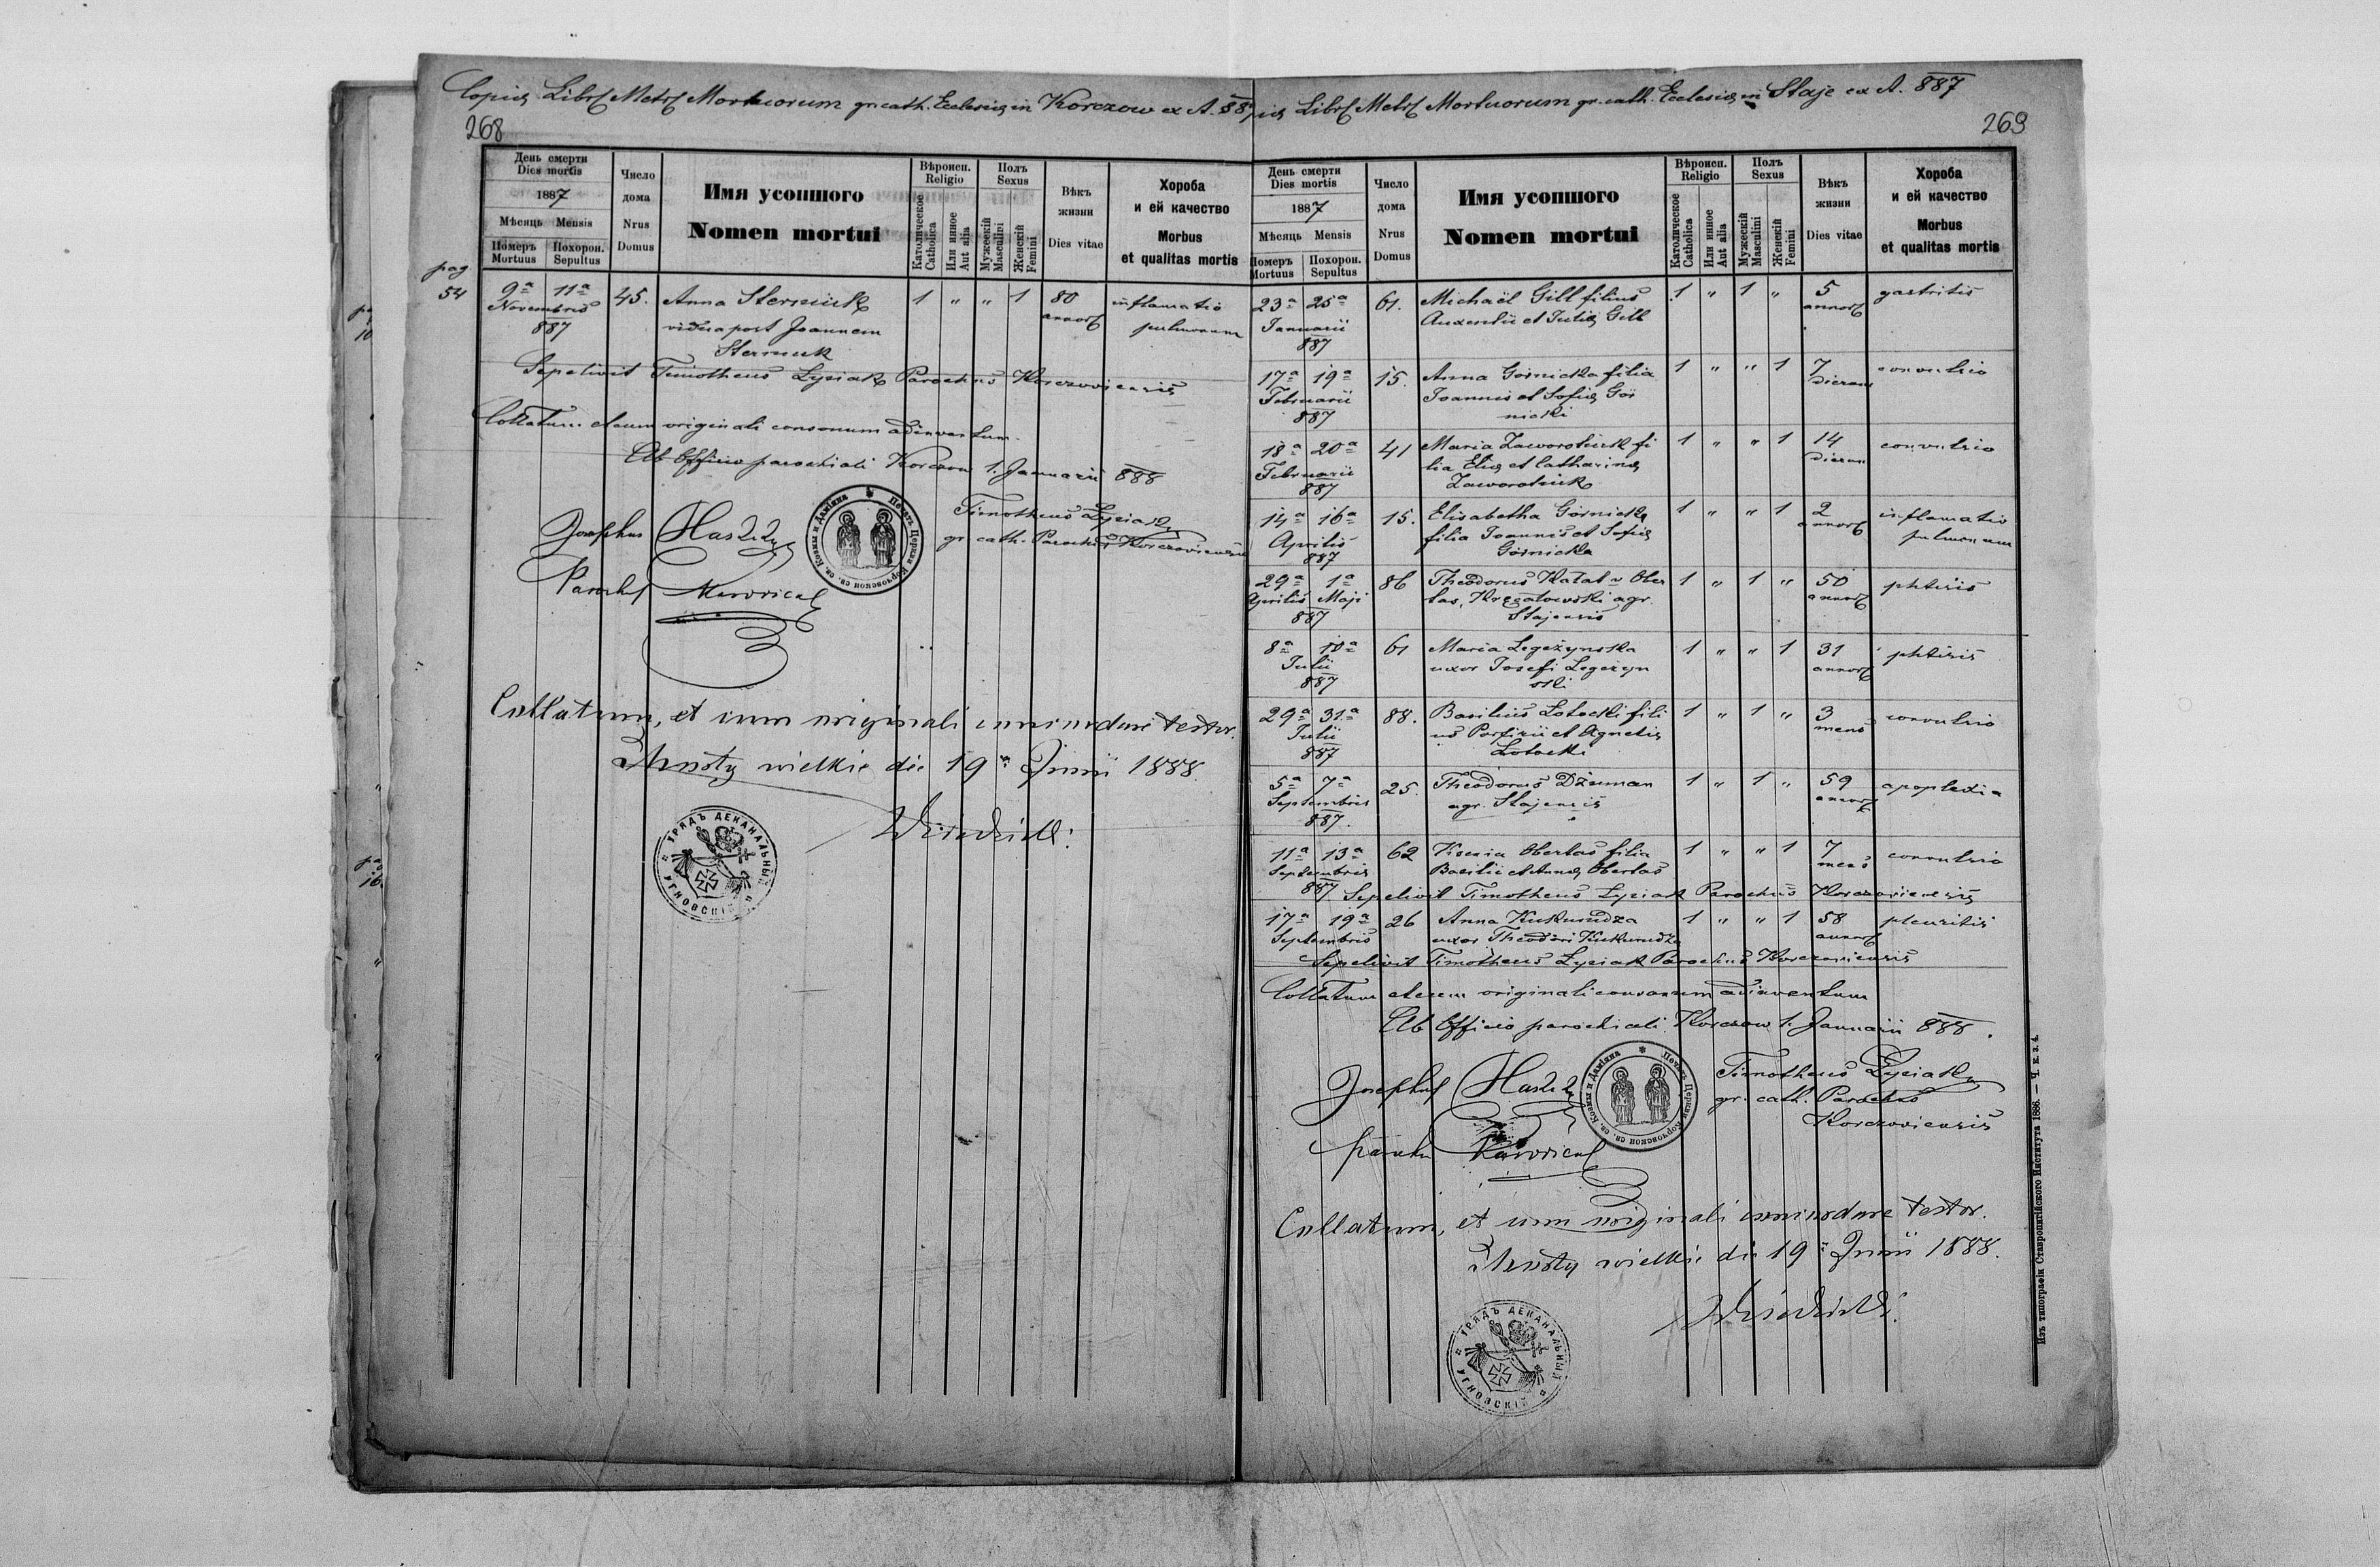 Copia Libri Metr. Mortuorum gr. cath. Ecclesiæ in Korczow ex A. 887
268
День смерти
Dies mortis
1887
Мѣсяць Mensis
Померъ Mortuus
Похорон. Sepultus
Число дома
Nrus Domus
Имя усопшого
Nomen mortui
Вѣроисп.
Religio
Католическое Catholica
Или инное Aut alia
Полъ
Sexus
Мужескій Masculini
Женскій Femini
Вѣкъ жизни
Dies vitae
Хороба
и ей качество
Morbus
et qualitas mortis
pag 54
9ª 11ª 45. Anna Sterniuk 1 „ „ 1 80 inflamatio
Novembris vidua post Joannem annor. pulmonum
887 Sterniuk
Sepelivit Timotheus Łysiak Parochus Korczoviensis
Collatum et cum originali consonum adinventum.
Ab Officio parochiali Korczow 1. Januarii 888
Josephus
Timotheus Łysiak
gr. cath. Parochus Korczoviensis
Печать Церкви Корчовской св. Козмы и Даміяна
Collatum, et cum originali testor.
Mosty wielkie die 19ª Junii 1888.
УРЯДЪ ДЕКАНАЛЬНЫЙ
УГНОВСКІЙ
Libri Metr. Mortuorum gr. cath. Ecclesiæ in Staje ex A. 887
269
День смерти
Dies mortis
1887
Мѣсяць Mensis
Померъ Mortuus
Похорон. Sepultus
Число дома
Nrus Domus
Имя усопшого
Nomen mortui
Вѣроисп.
Religio
Католическое Catholica
Или инное Aut alia
Полъ
Sexus
Мужескій Masculini
Женскій Femini
Вѣкъ жизни
Dies vitae
Хороба
и ей качество
Morbus
et qualitas mortis
23ª 25ª 61. Michaël Gill filius 1 „ 1 „ 5 gastritis
Januarii Auxentii et Juliæ Gill annor.
887
17ª 19ª 15. Anna Górnicka filia 1 „ „ 1 7 convulsio
Februarii Joannis et Sofiæ Gór dierum
887 nicki
18ª 20ª 41 Maria Zaworotiuk fi 1 „ „ 1 14 convulsio
Februarii lia Eliæ et Catharinæ dierum
887 Zaworotiuk
14ª 16ª 15. Elisabetha Górnicka 1 „ „ 1 2 inflamatio
Aprilis filia Joannis et Sofiæ annor. pulmonum
887 Górnicka
29ª 1ª 86 Theodorus Kałat v. Ober 1 „ 1 „ 50 phtisis
Aprilis Maji tas, agr. annor.
887 Stajensis
8ª 10ª 61 Maria Legeżynska 1 „ „ 1 31 phtisis
Julii uxor Josefi Legeżyn annor.
887 ski
29ª 31ª 88. Basilius Łotocki fili 1 „ 1 „ 3 convulsio
Julii us Porfirii et Agnetis mens
887 Łotocki
5ª 7ª 25. Theodorus Dżuman 1 „ 1 „ 59 apoplexia
Septembris agr. Stajensis annor.
887.
11ª 13ª 62 Ksenia Obertas filia 1 „ „ 1 7 convulsio
Septembris Basilii et Annæ Obertas mens
887 Sepelivit Timotheus Łysiak Parochus Korczoviensis
17ª 19ª 26 Anna Kukurudza 1 „ „ 1 58 pleuritis
Septembris uxor Theodori Kukurudza annor.
Sepelivit Timotheus Łysiak Parochus Korczoviensis
Collatum et cum originali consonum adinventum
Ab Officio parochiali Korczow 1. Januarii 888.
Josephus
Timotheus Łysiak
gr. cath. Parochus
Korczoviensis
Печать Церкви Корчовской св. Козмы и Даміяна
Collatum, et cum originali testor.
Mosty wielkie die 19ª Junii 1888.
УРЯДЪ ДЕКАНАЛЬНЫЙ
УГНОВСКІЙ
Изъ типографіи Ставропигійского Института 1886. — Ч. к. з. 4.